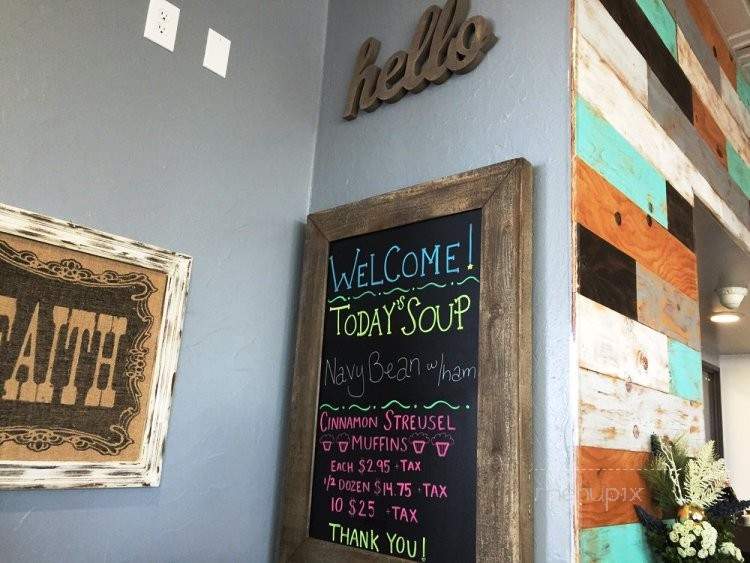 hello
FAITH
WELCOME!
TODAY'S SOUP
Navy Bean w/ham
CINNAMON STREUSEL
MUFFINS
EACH $2.95 +TAX
1/2 DOZEN $14.75 +TAX
10 $25 +TAX
THANK YOU!
menupix